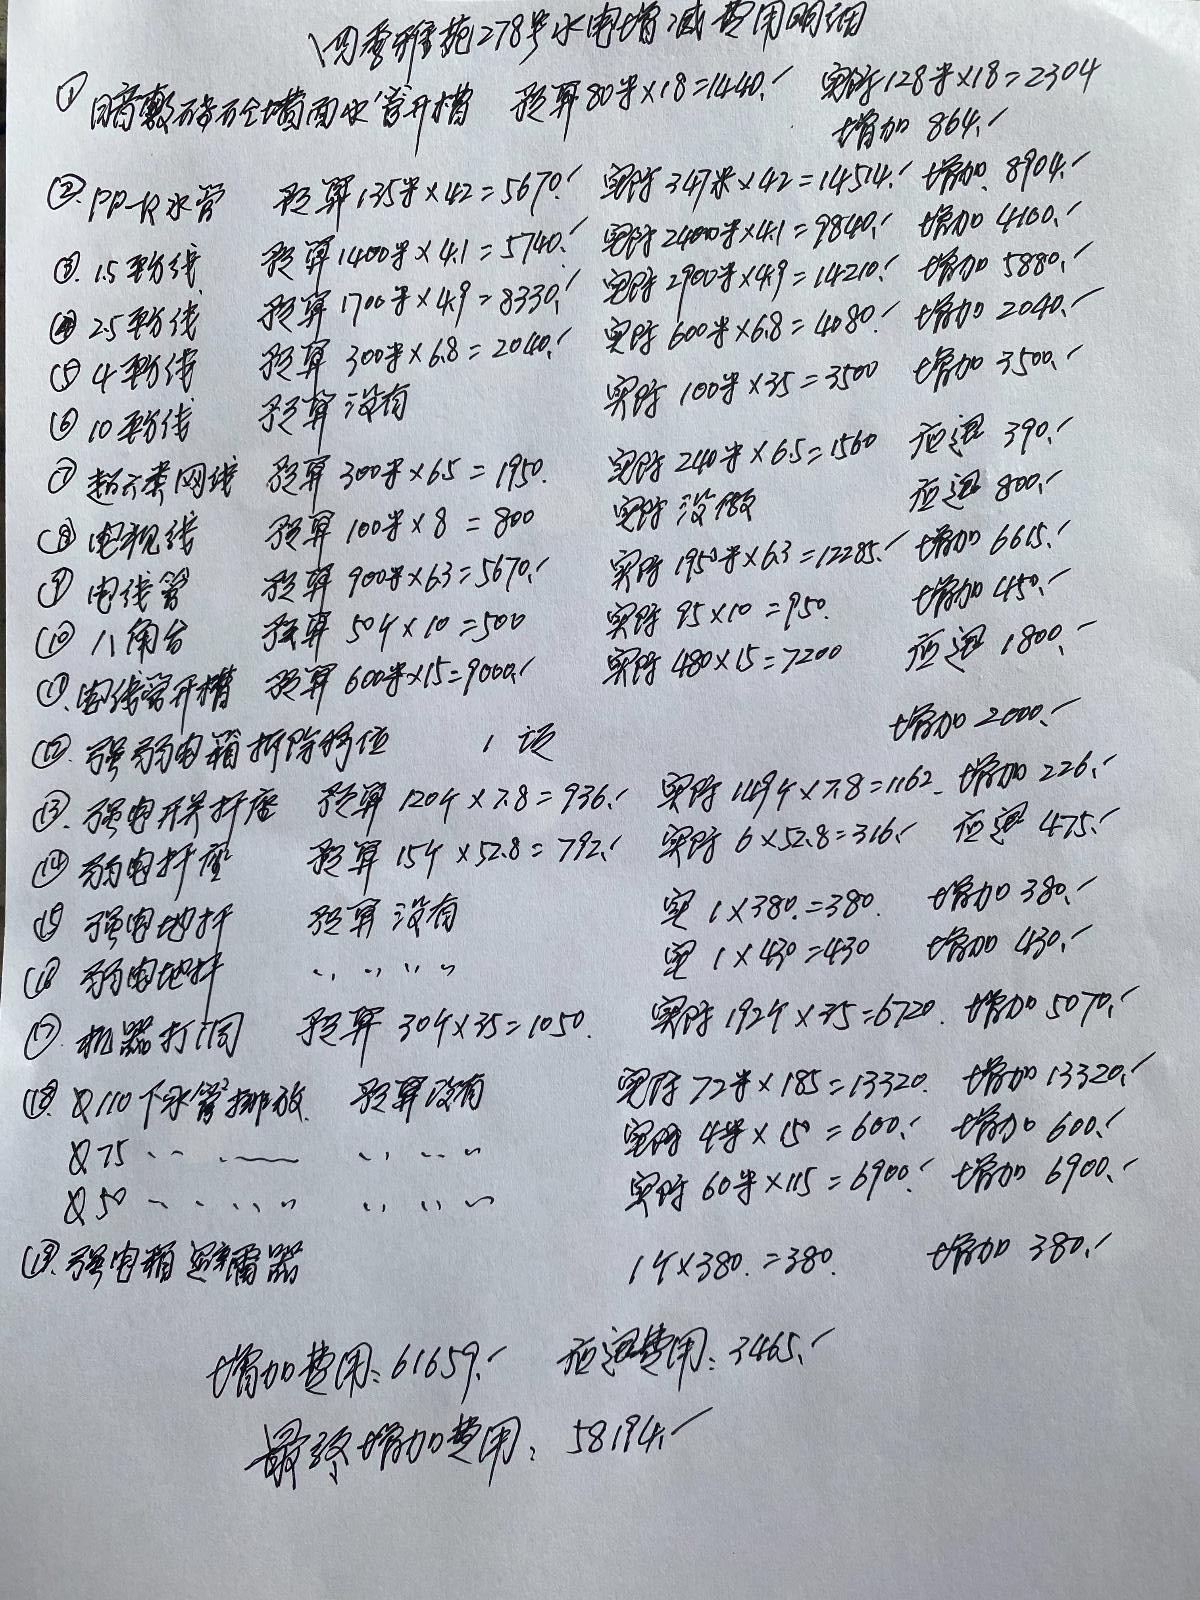 四季雅苑278号水电增减费用明细
① 暗敷砖石仝墙面水管开槽 预算80米×18=1440.- 实际128米×18=2304
增加 864.-
② PP-R水管 预算135米×42=5670.- 实际347米×42=14514.- 增加 8904.-
③ 1.5平方线 预算1400米×4.1=5740.- 实际2400米×4.1=9840.- 增加 4100.-
④ 2.5平方线 预算1700米×4.9=8330.- 实际2900米×4.9=14210.- 增加 5880.-
⑤ 4平方线 预算 300米×6.8=2040.- 实际 600米×6.8=4080.- 增加 2040.-
⑥ 10平方线 预算没有 实际 100米×35=3500 增加 3500.-
⑦ 超六类网线 预算300米×6.5=1950. 实际240米×6.5=1560 应退 390.-
⑧ 电视线 预算100米×8=800 实际没做 应退 800.-
⑨ 电线管 预算900米×6.3=5670.- 实际1950米×6.3=12285.- 增加 6615.-
⑩ 八角台 预算50个×10=500 实际 95×10=950. 增加 450.-
⑪ 电线管开槽 预算600米×15=9000.- 实际480×15=7200 应退 1800.-
⑫ 强弱电箱拆除移位 1项 增加 2000.-
⑬ 强电开关插座 预算120个×7.8=936.- 实际149个×7.8=1162. 增加 226.-
⑭ 弱电插座 预算15个×52.8=792.- 实际 6×52.8=316.- 应退 475.-
⑮ 强电地插 预算没有 实 1×380.=380. 增加 380.-
⑯ 弱电地插 〃 〃 〃 〃 实 1×430=430 增加 430.-
⑰ 机器打洞 预算30个×35=1050. 实际192个×35=6720. 增加 5070.-
⑱ Ø110下水管排放. 预算没有 实际72米×185=13320. 增加13320.-
Ø75 〃 〃 〃 〃 〃 实际4米×150=600.- 增加 600.-
Ø50 〃 〃 〃 〃 〃 〃 〃 实际60米×115=6900.- 增加 6900.-
⑲ 强电箱避雷器 1个×380.=380. 增加 380.-
增加费用:61659.- 应退费用:3465.-
最终增加费用:58194.-